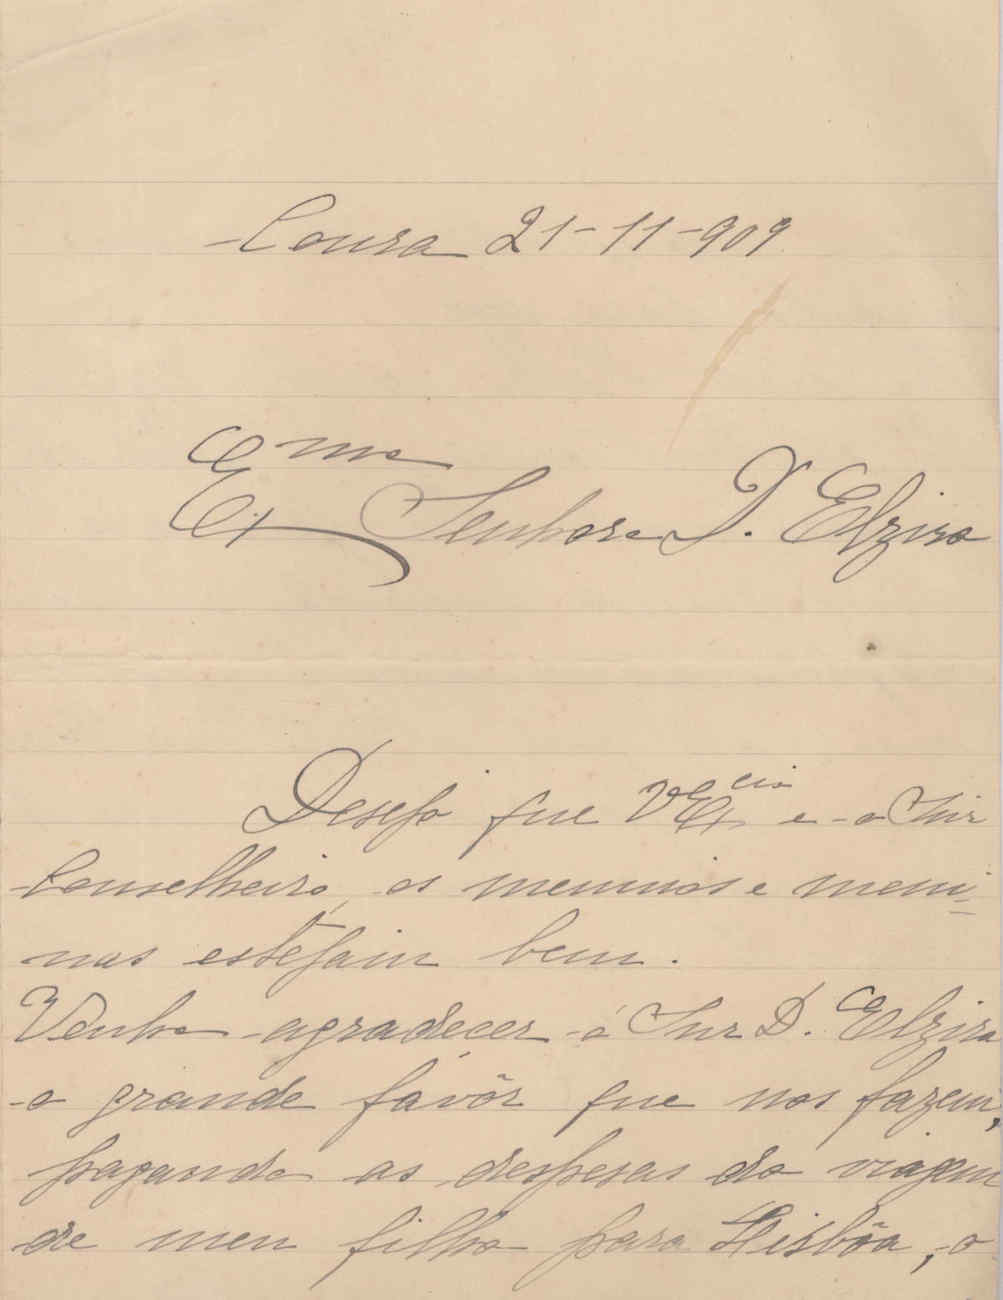 Coura 21-11-909
Exma Senhora D. Elzira
Desejo que V Excia e o Snr
Conselheiro, os meninos e meni-
nas estêjam bem.
Venho agradecer á Snr D. Elzira
o grande favôr que nos fazem,
pagando as despesas da viagem
de meu filho para Lisbôa, o